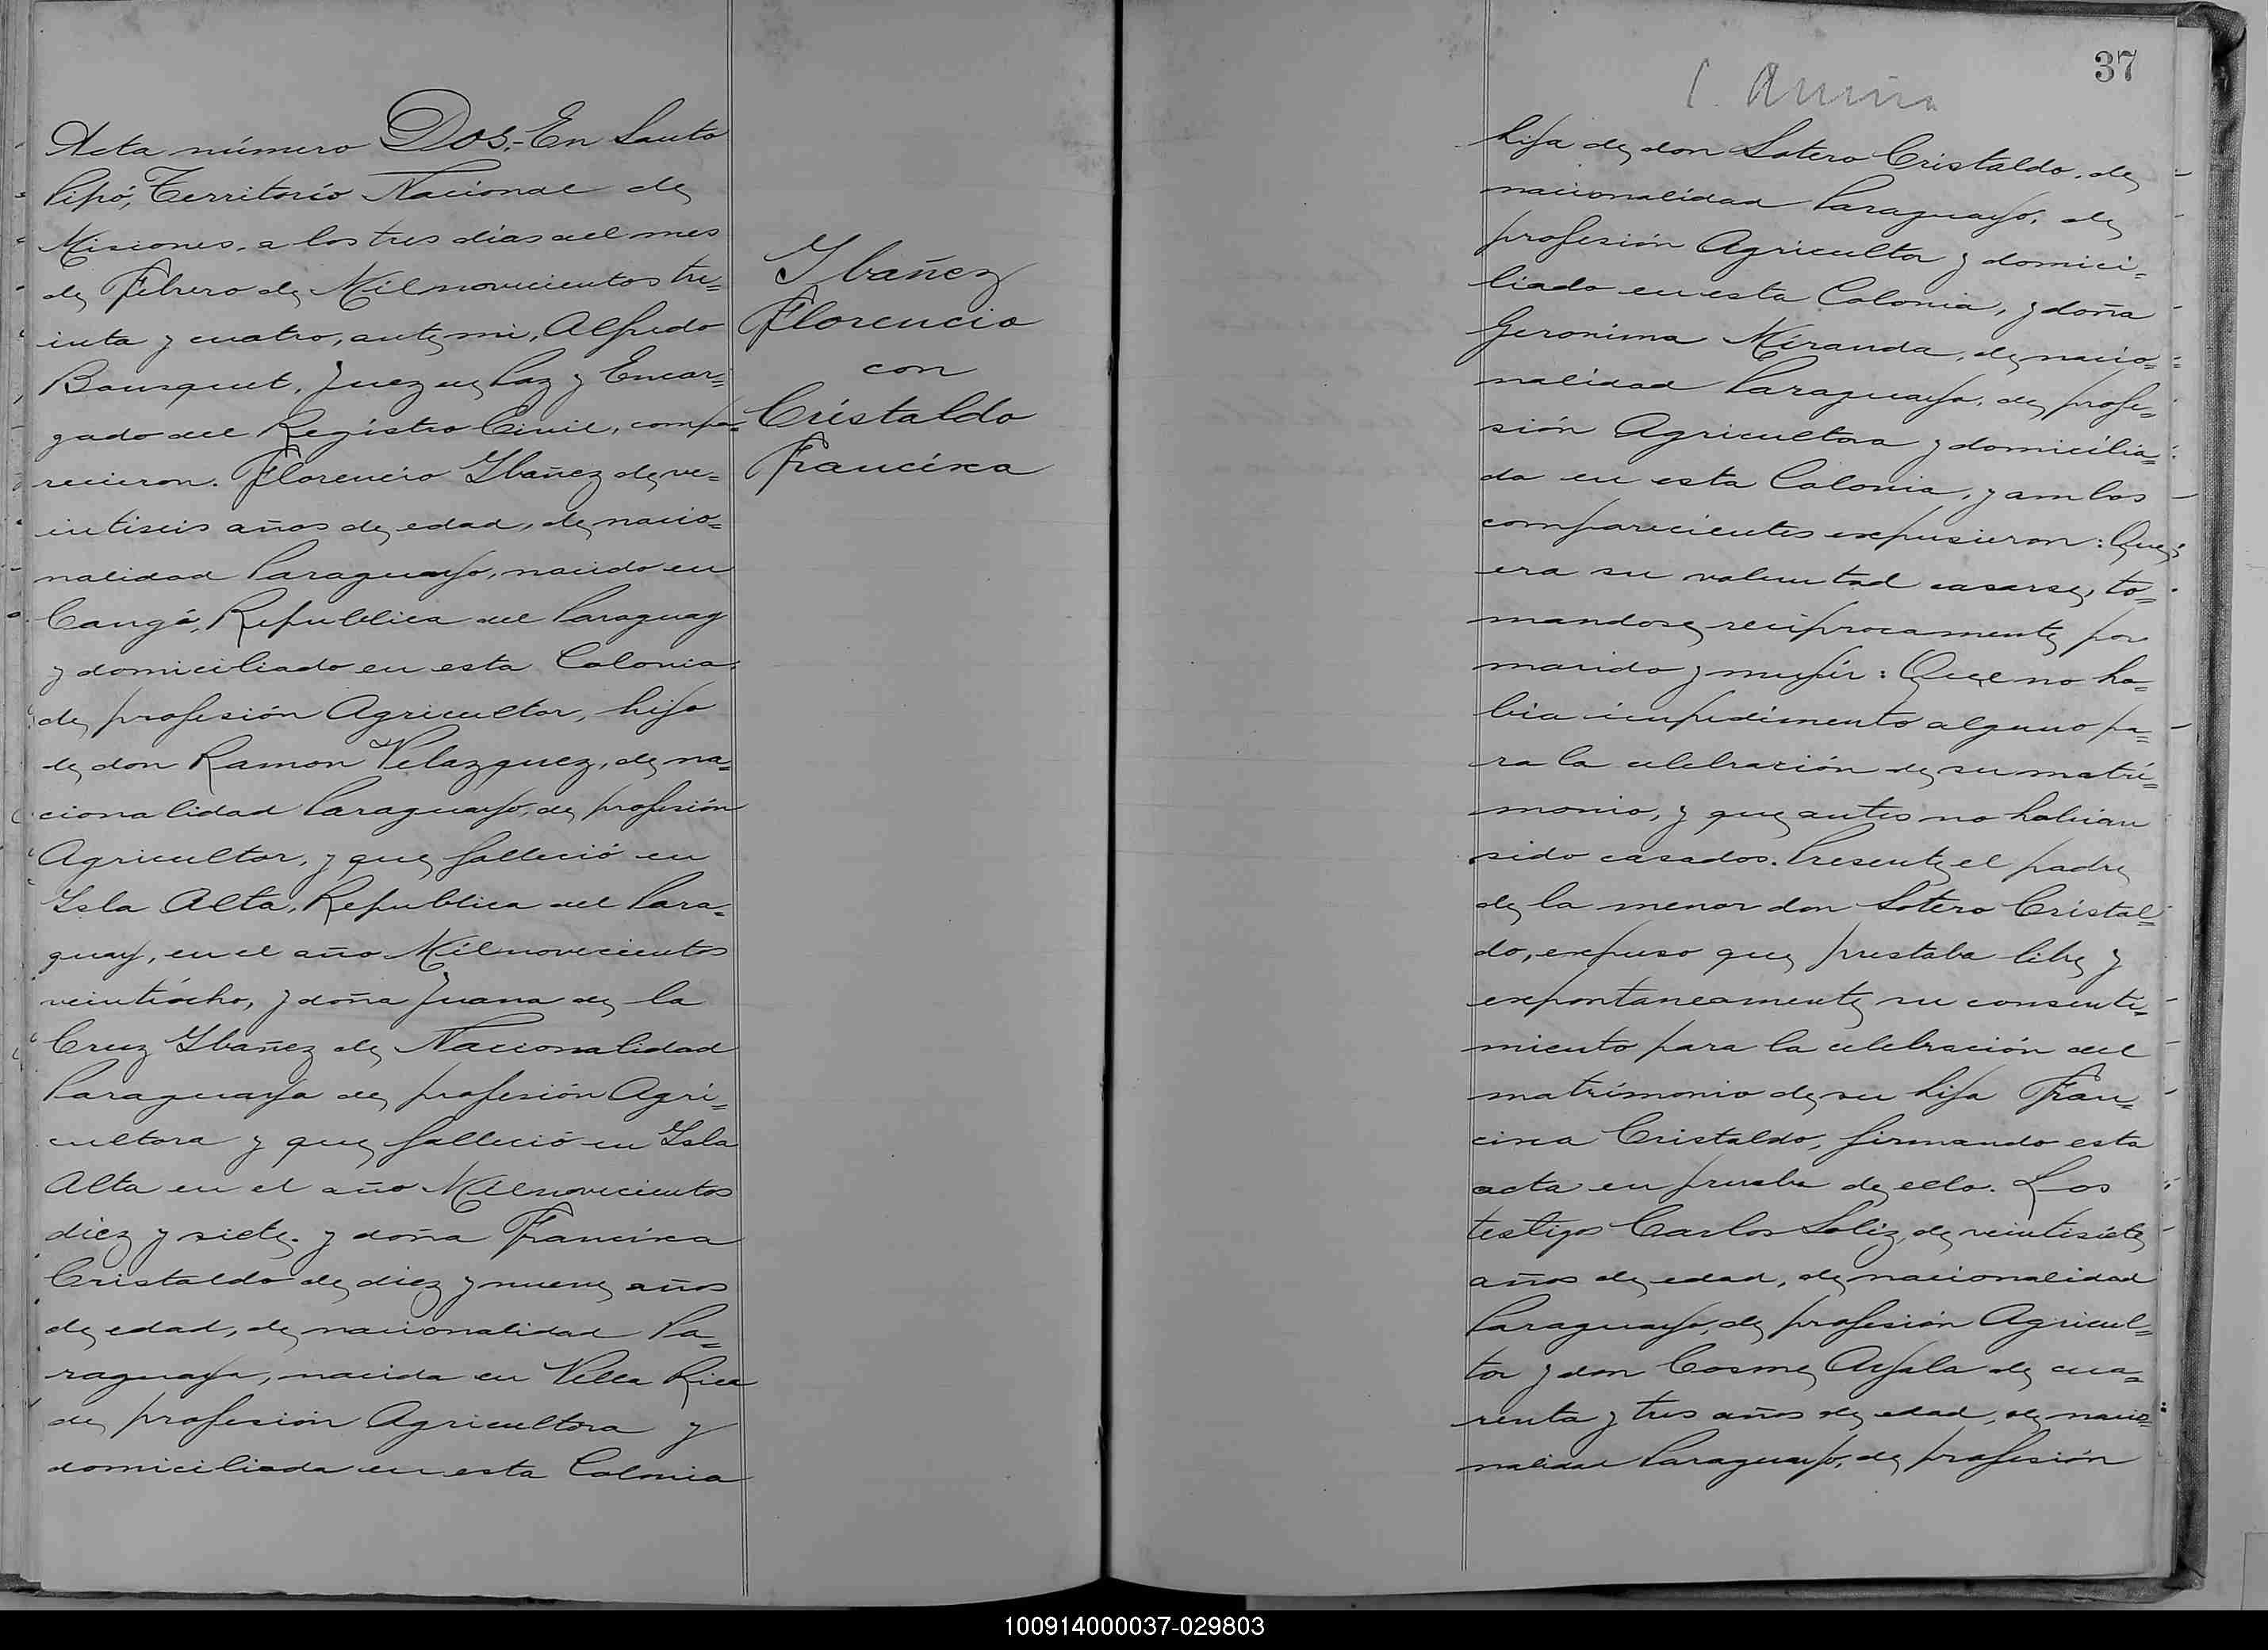 Acta número Dos.- En Santo
Pipó, Territorio Nacional de
Misiones, a los tres dias del mes
de Febrero de Mil novecientos tre=
inta y cuatro, ante mi, Alfredo
Bousquet, Juez de Paz y Encar=
gado del Registro Civil, compa=
recieron. Florencio Ybañez de ve=
intiseis años de edad, de nacio=
nalidad Paraguayo, nacido en
Cangó, Republica del Paraguay
y domiciliado en esta Colonia,
de profesión Agricultor, hijo
de don Ramon Velazquez, de na=
cionalidad Paraguayo, de profesión
Agricultor, y que falleció en
Ysla Alta, Republica del Para=
guay, en el año Mil novecientos
veintiócho, y doña Juana de la
Cruz Ybañez de Nacionalidad
Paraguaya de profesión Agri=
cultora y que falleció en Ysla
Alta en el año Mil novecientos
diez y siete, y doña Francisca
Cristaldo de diez y nueve años
de edad, de nacionalidad Pa=
raguaya, nacida en Villa Rica
de profesión Agricultora y
domiciliada en esta Colonia
Ybañez
Florencio
con
Cristaldo
Francisca
37
hija de don Sotero Cristaldo, de
nacionalidad Paraguayo, de
profesión Agricultor y domici=
liado en esta Colonia, y doña
Geronima Miranda, de nacio=
nalidad Paraguaya, de profe=
sión Agricultora y domicilia=
da en esta Colonia, y ambos
comparecientes expusieron: Que
era su voluntad casarse, to=
mandose reciprocamente por
marido y mujer: Que no ha=
bia impedimento alguno pa=
ra la celebración de su matri=
monio, y que antes no habian
sido casados. Presente el padre
de la menor don Sotero Cristal=
do, expuso que prestaba libre y
expontaneamente su consenti=
miento para la celebración del
matrimonio de su hija Fran=
cisca Cristaldo, firmando esta
acta en prueba de ello. Los
testigos Carlos Soliz, de veintisiete
años de edad, de nacionalidad
Paraguayo, de profesión Agricul=
tor y don Cosme Ayala de cua=
renta y tres años de edad, de nacio=
nalidad Paraguayo, de profesión
100914000037-029803